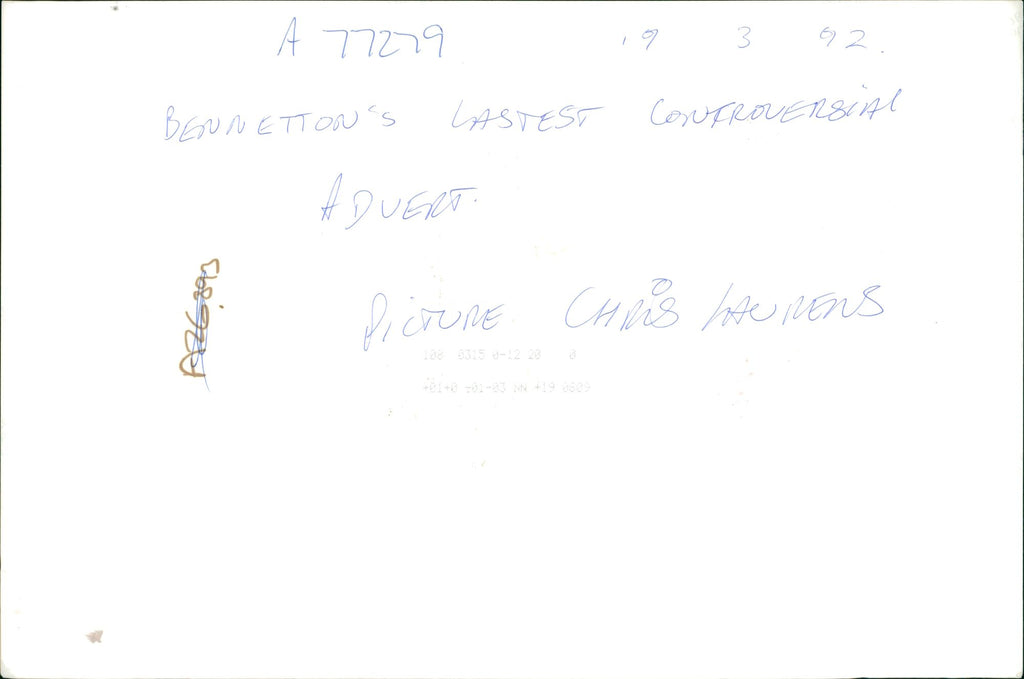 A 77279 19 3 92.
BENNETTON'S LASTEST CONTROVERSIAL
ADVERT.
PICTURE CHRIS LAURENS
100 6315 0-12 20 0
+01+0 ±01-03 NN +19 0809